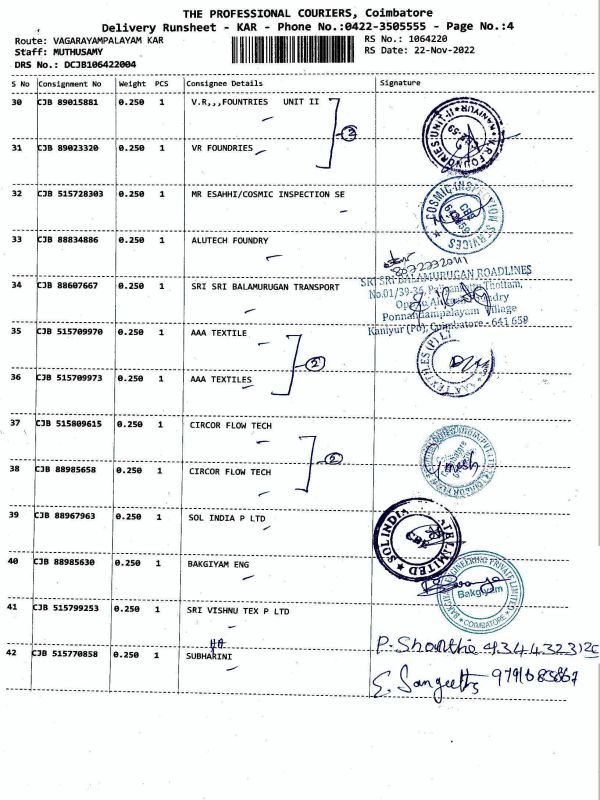 THE PROFESSIONAL COURIERS, Coimbatore
Delivery Runsheet - KAR - Phone No.:0422-3505555 - Page No.:4
Route: VAGARAYAMPALAYAM KAR
RS No.: 1064220
Staff: MUTHUSAMY
RS Date: 22-Nov-2022
DRS No.: DCJB106422004
S No Consignment No Weight PCS Consignee Details Signature
30 CJB 89015881 0.250 1 V.R,,,FOUNTRIES UNIT II
2
31 CJB 89023320 0.250 1 VR FOUNDRIES
32 CJB 515728303 0.250 1 MR ESAHHI/COSMIC INSPECTION SE
COSMIC INSPECTION SERVICES
33 CJB 88834886 0.250 1 ALUTECH FOUNDRY
34 CJB 88607667 0.250 1 SRI SRI BALAMURUGAN TRANSPORT
SRI SRI BALAMURUGAN ROADLINES
No.01/39-36,
Ponnandampalayam Village
Kaniyur (Po), Coimbatore - 641 659
35 CJB 515709970 0.250 1 AAA TEXTILE
2
36 CJB 515709973 0.250 1 AAA TEXTILES
37 CJB 515809615 0.250 1 CIRCOR FLOW TECH
2
38 CJB 88985658 0.250 1 CIRCOR FLOW TECH
39 CJB 88967963 0.250 1 SOL INDIA P LTD
SOL INDIA LIMITED
40 CJB 88985630 0.250 1 BAKGIYAM ENG
ENGINEERING PRIVATE LIMITED
Bakgiyam
COIMBATORE
41 CJB 515799253 0.250 1 SRI VISHNU TEX P LTD
42 CJB 515770858 0.250 1 SUBHARINI
P. Shanthi
E. Sangeetha